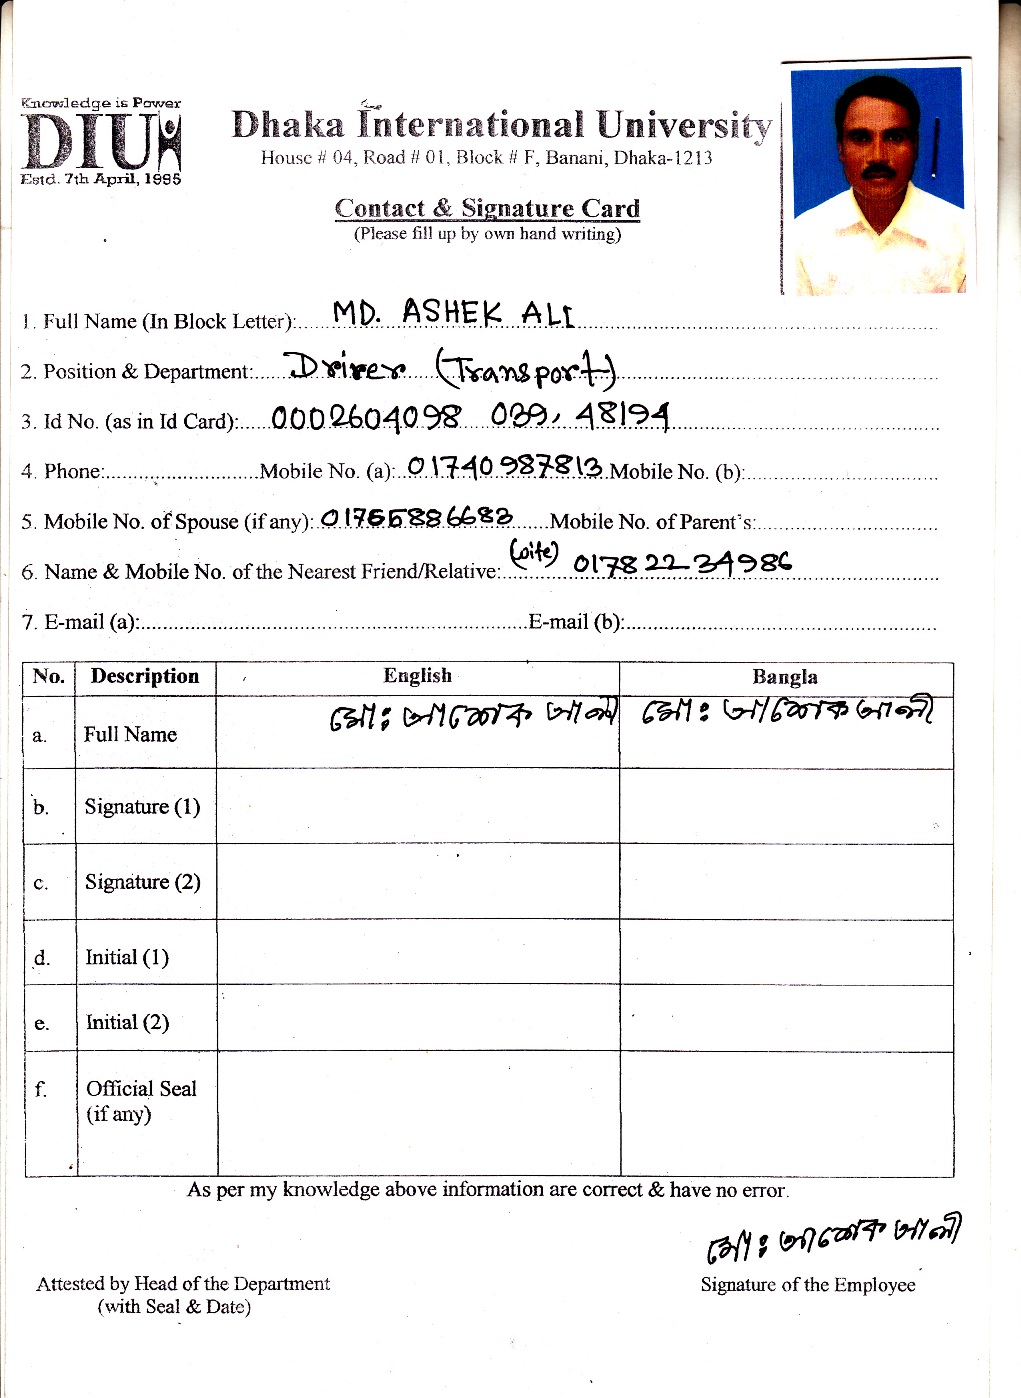 Knowledge is Power
DIU
Estd. 7th April, 1995
Dhaka International University
House # 04, Road # 01, Block # F, Banani, Dhaka-1213
Contact & Signature Card
(Please fill up by own hand writing)
1. Full Name (In Block Letter): MD. ASHEK ALI
2. Position & Department: Driver (Transport)
3. Id No. (as in Id Card): 0002604098 039, 48194
4. Phone: Mobile No. (a): 01740987813 Mobile No. (b):
5. Mobile No. of Spouse (if any): Mobile No. of Parent's:
6. Name & Mobile No. of the Nearest Friend/Relative: 01782234986
7. E-mail (a): E-mail (b):
No. Description English Bangla
a. Full Name মোঃ আশেক আলী মোঃ আশেক আলী
b. Signature (1)
c. Signature (2)
d. Initial (1)
e. Initial (2)
f. Official Seal
(if any)
As per my knowledge above information are correct & have no error.
মোঃ আশেক আলী
Attested by Head of the Department Signature of the Employee
(with Seal & Date)